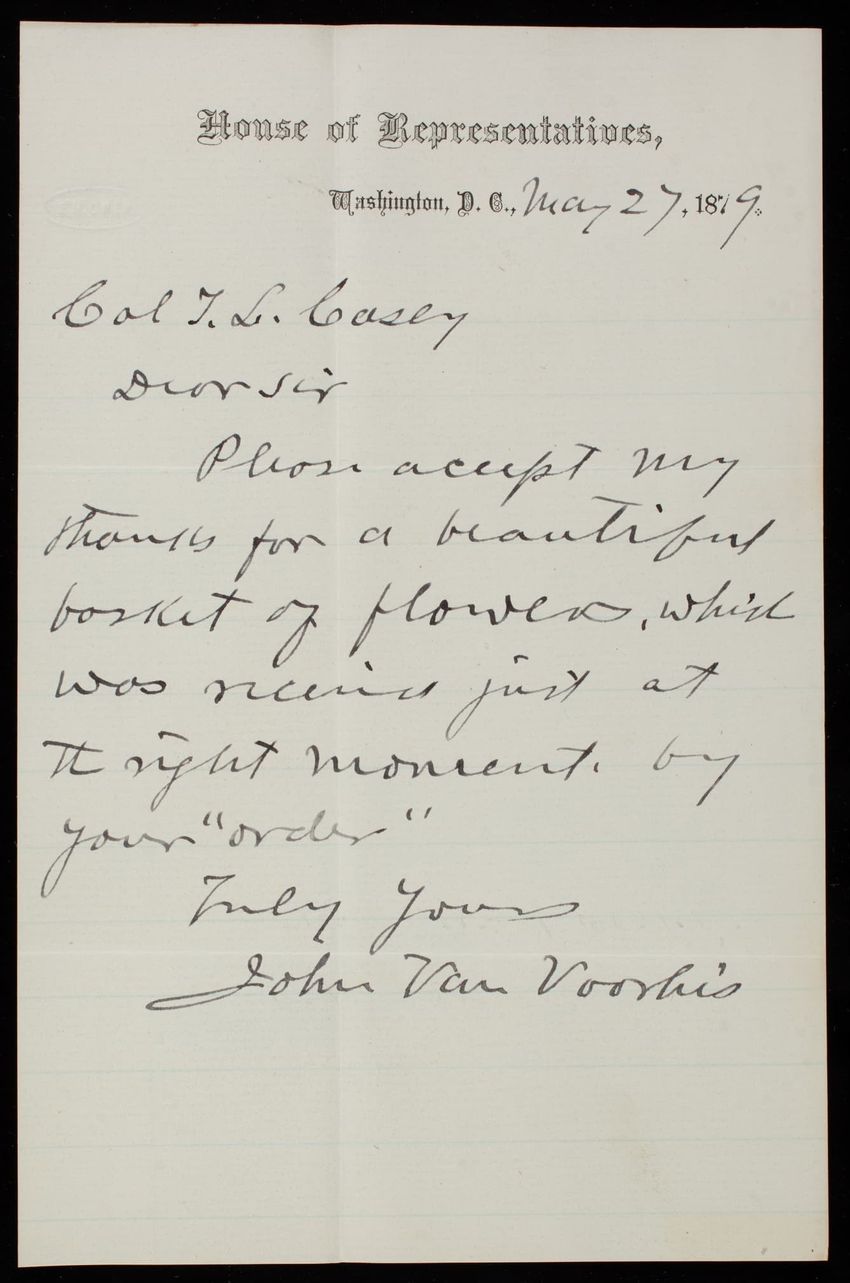 House of Representatives,
Washington, D. C., May 27, 1879.
Col T. L. Casey
Dear Sir
Please accept my
thanks for a beautiful
basket of flowers, which
was received just at
the right moment. by
your "order"
Truly Yours
John Van Voorhis